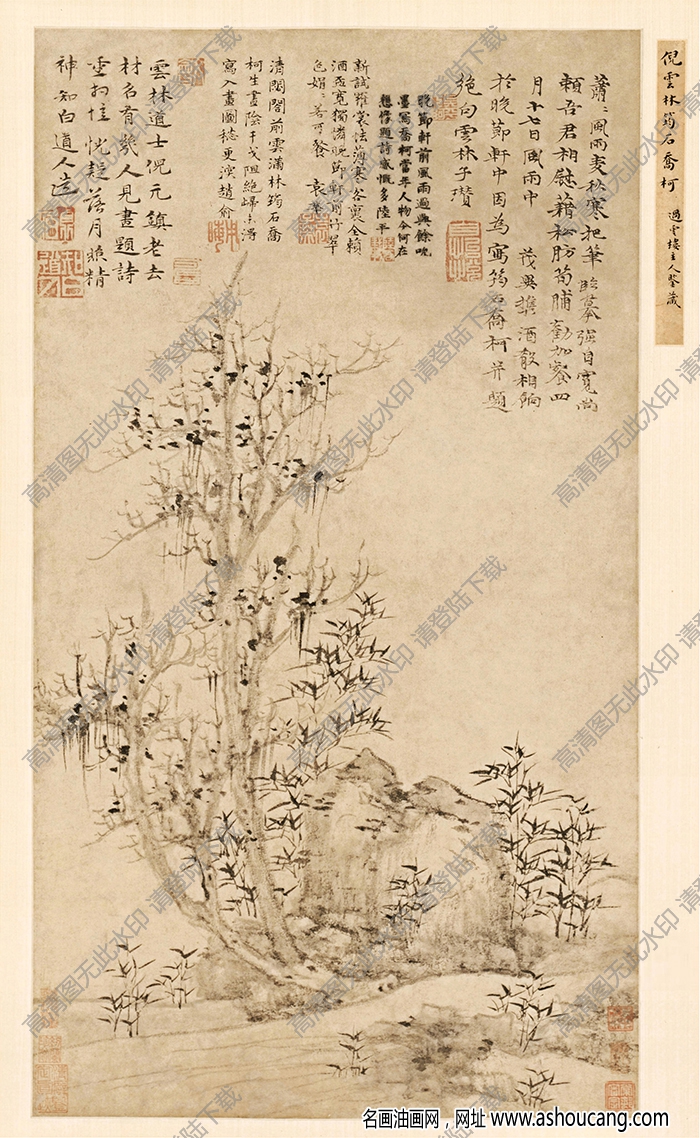 倪雲林筠石喬柯
過雲樓主人鑒藏
蕭〻風雨麦秋寒把筆臨摹强自寬尚
賴吾君相慰藉松肪筍脯勸加餐四
月十七日風雨中 茂異携酒殽相餉
於晚節軒中因為寫筠石喬柯并題
絶句雲林子瓚
晚節軒前風雨過興餘呪
墨寫喬柯當年人物今何在
想像題詩感慨多陸平
新試羅裳怯薄寒客裏全賴
酒盃寬獨憐晚節軒前子翠
色娟〻若可餐 袁華
清閟閣前雲滿林筠石喬
柯生晝陰干戈阻絶歸未得
寫入畫圖愁更深趙俞
雲林道士倪元鎮老去
材名有幾人見畫題詩
重相憶恍疑落月照精
神知白道人造
高清图无此水印 请登陆下载
名画油画网，网址 www.ashoucang.com